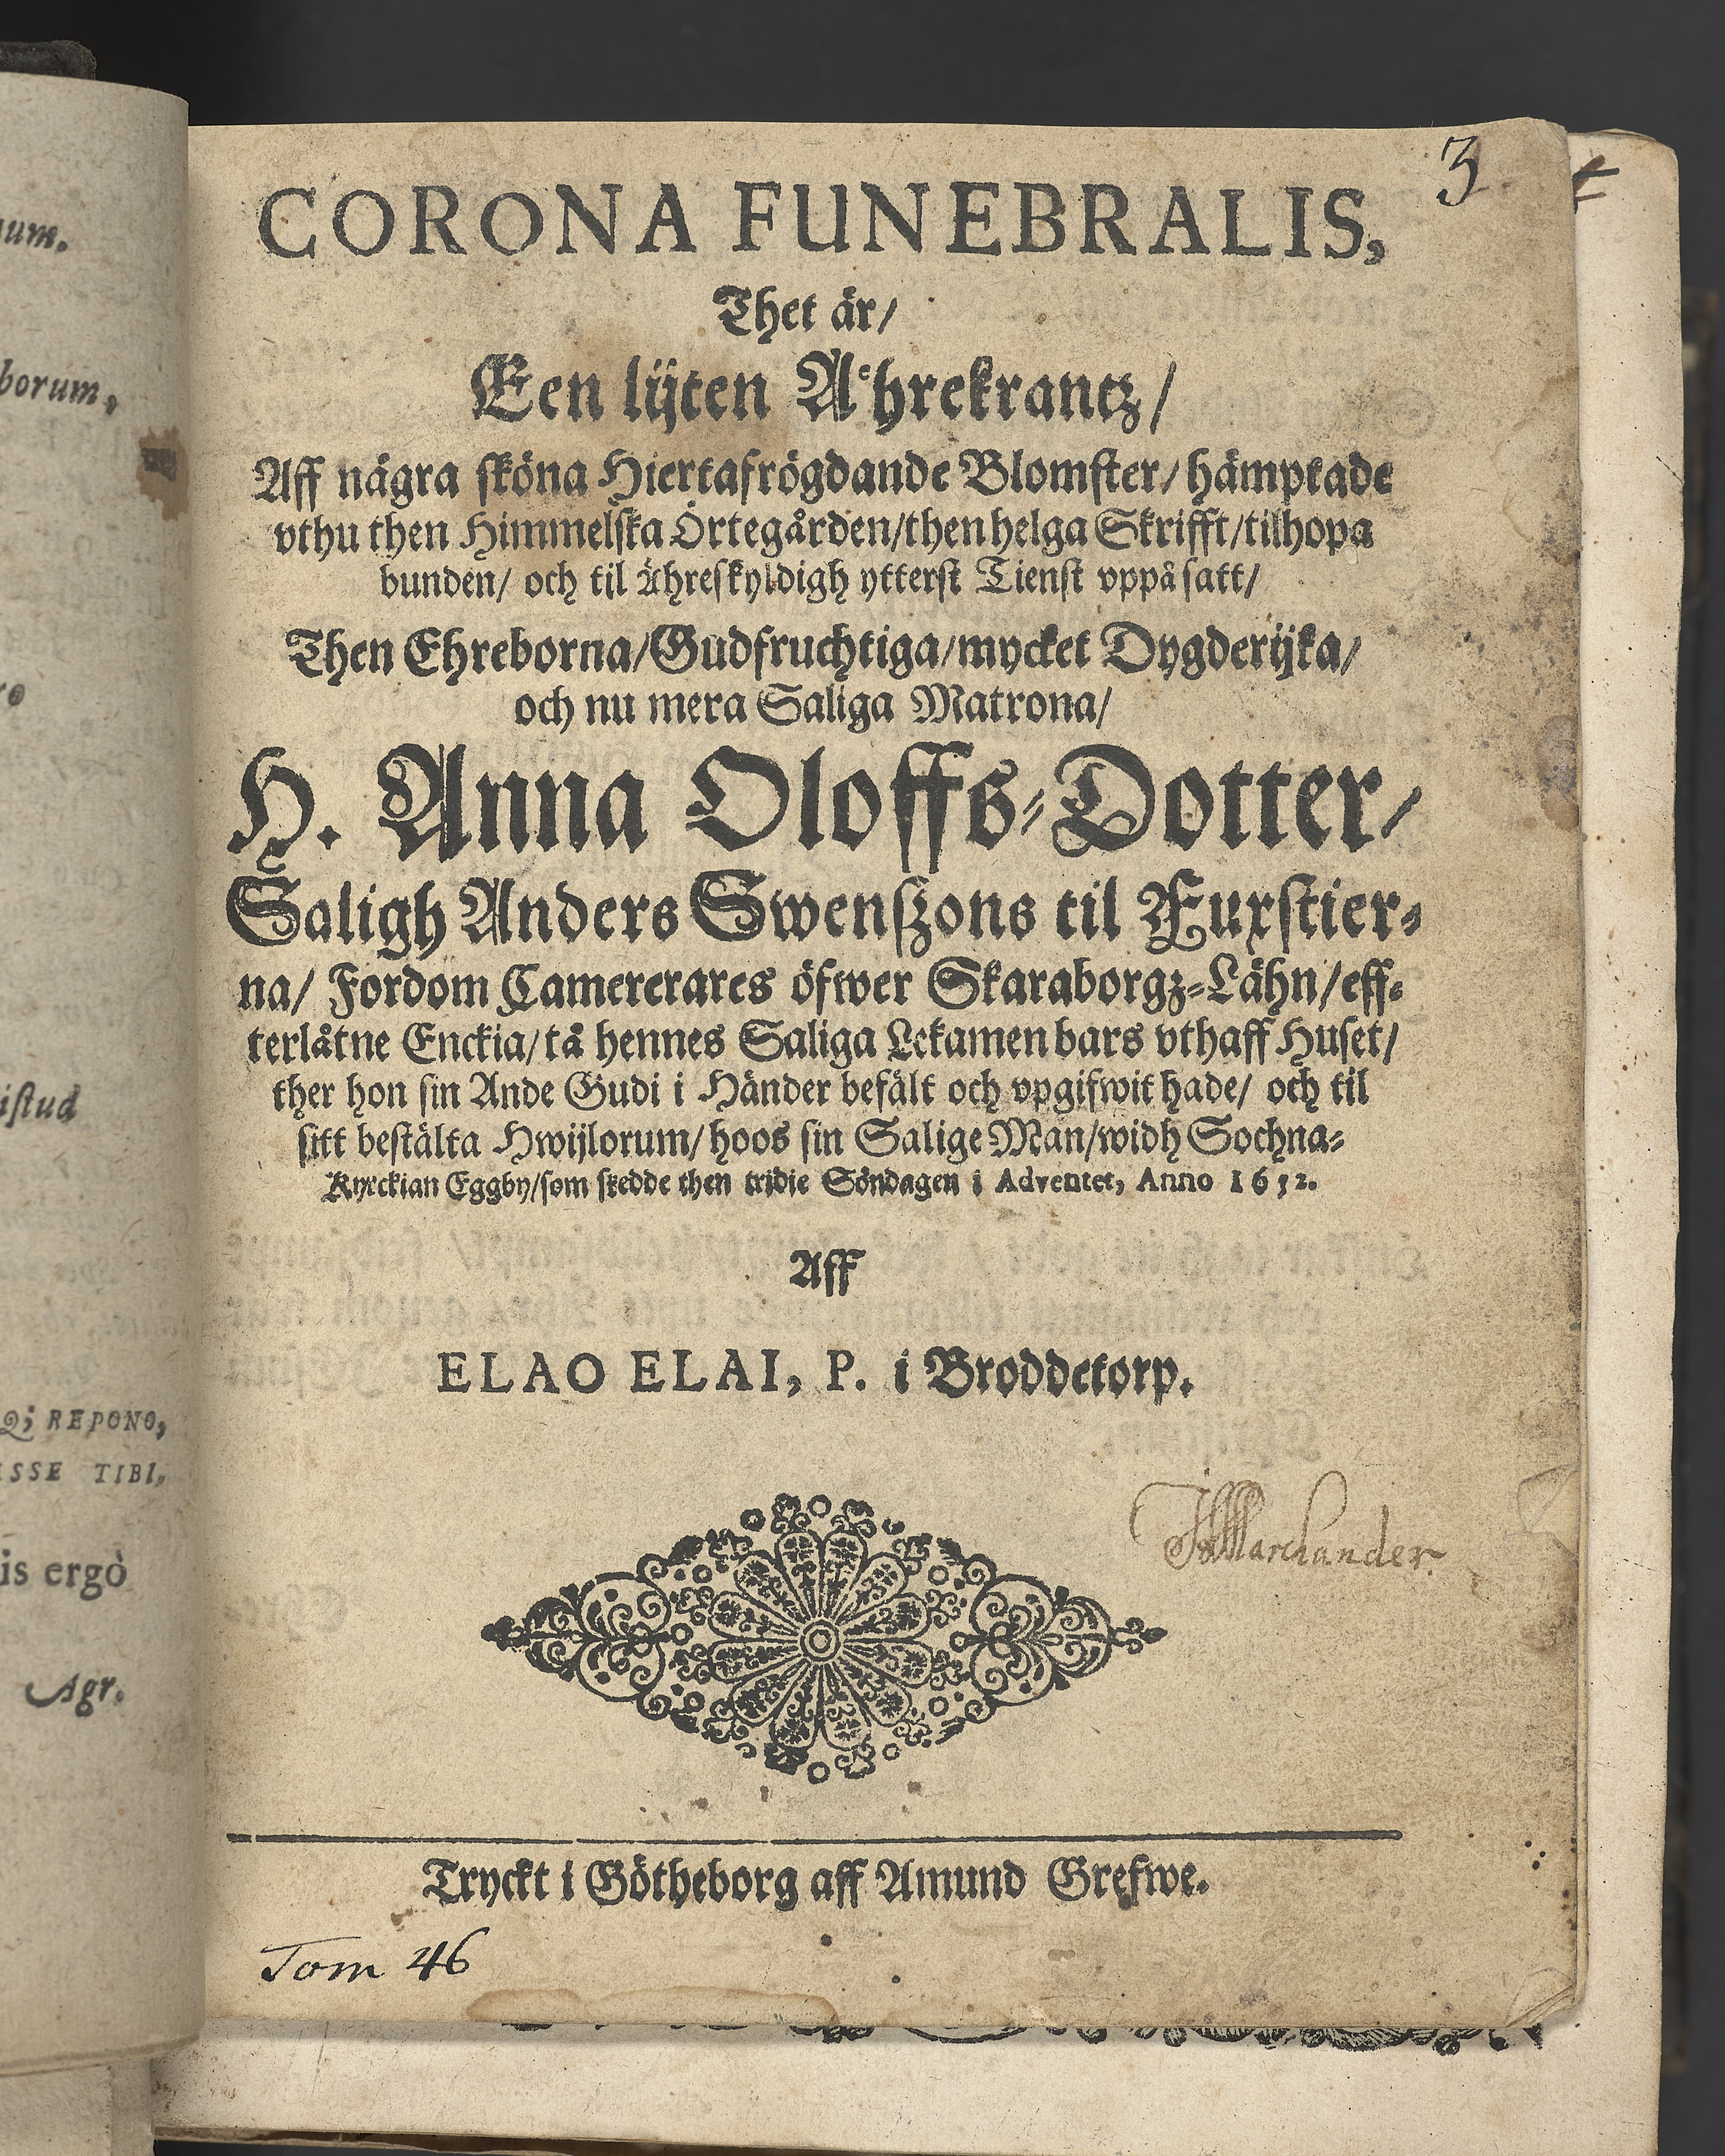 um.
borum,
istud
Q; REPONO,
SSE TIBI,
is ergò
Agr.
3
CORONA FUNEBRALIS,
Thet är/
Een lijten Aͤhrekrantz/
Aff några sköna Hiertafrögdande Blomster/ hämptade
vthu then Himmelska Örtegården/then helga Skrifft/tilhopa
bunden/ och til ähreskyldigh ytterst Tienst vppå satt/
Then Ehreborna/Gudfruchtiga/mycket Dygderijka/
och nu mera Saliga Matrona/
H. Anna Oloffs-Dotter/
Saligh Anders Swenszons til Furstier-
na/ Fordom Camererares öfwer Skaraborgz-Lähn/eff-
terlåtne Enckia/tå hennes Saliga Lekamen bars vthaff Huset/
ther hon sin Ande Gudi i Händer befält och vpgifwit hade/ och til
sitt bestälta Hwijlorum/hoos sin Salige Man/widh Sochna-
Kyrckian Eggby/som skedde then tridie Söndagen i Adventet, Anno 1652.
Aff
ELAO ELAI, P. i Broddetorp.
Marchander.
Tryckt i Götheborg aff Amund Grefwe.
Tom 46